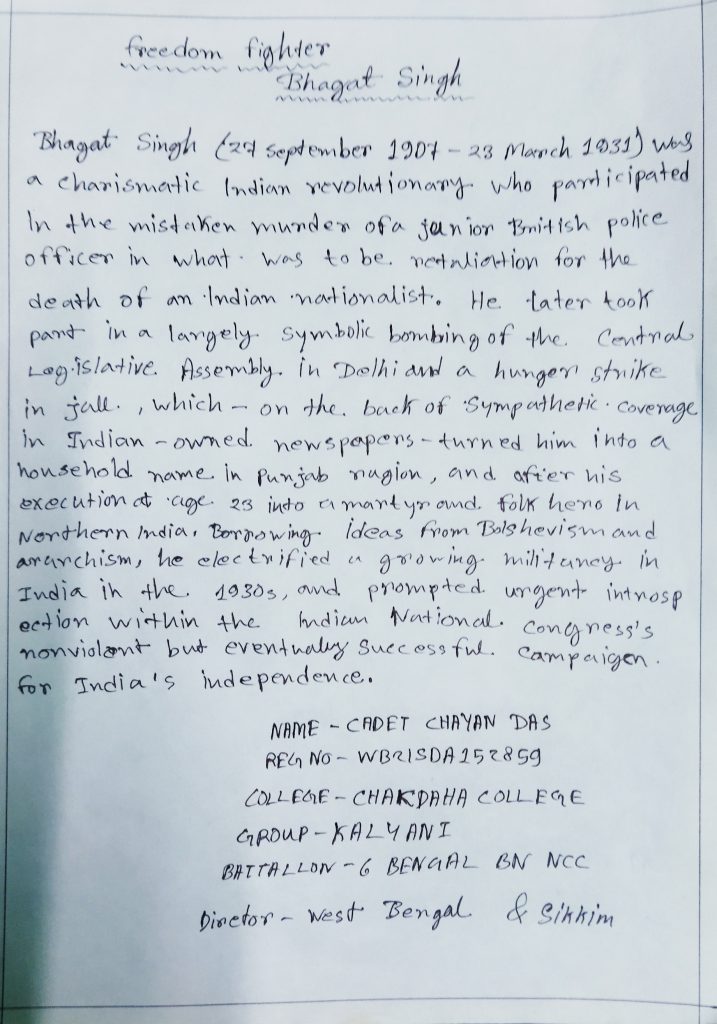 freedom fighter
Bhagat Singh
Bhagat Singh (27 September 1907 - 23 March 1931) was
a charismatic Indian revolutionary who participated
In the mistaken murder of a junior British police
officer in what was to be retaliation for the
death of an Indian nationalist. He later took
part in a largely symbolic bombing of the Central
Legislative Assembly in Delhi and a hunger strike
in jall., which - on the back of sympathetic coverage
in Indian - owned newspapers - turned him into a
household name in Punjab ragion, and after his
execution at age 23 into a martyr and folk hero in
Northern India. Borrowing ideas from Bolshevism and
anarchism, he electrified a growing militancy in
India in the 1930s, and prompted urgent introsp
ection within the Indian National Congress's
nonviolent but eventualy successful campaigen.
for India's independence.
NAME - CADET CHAYAN DAS
REG NO - WB21SDA152859
COLLEGE - CHAKDAHA COLLEGE
GROUP - KALYANI
BATTALLON - 6 BENGAL BN NCC
Diretor - West Bengal & Sikkim